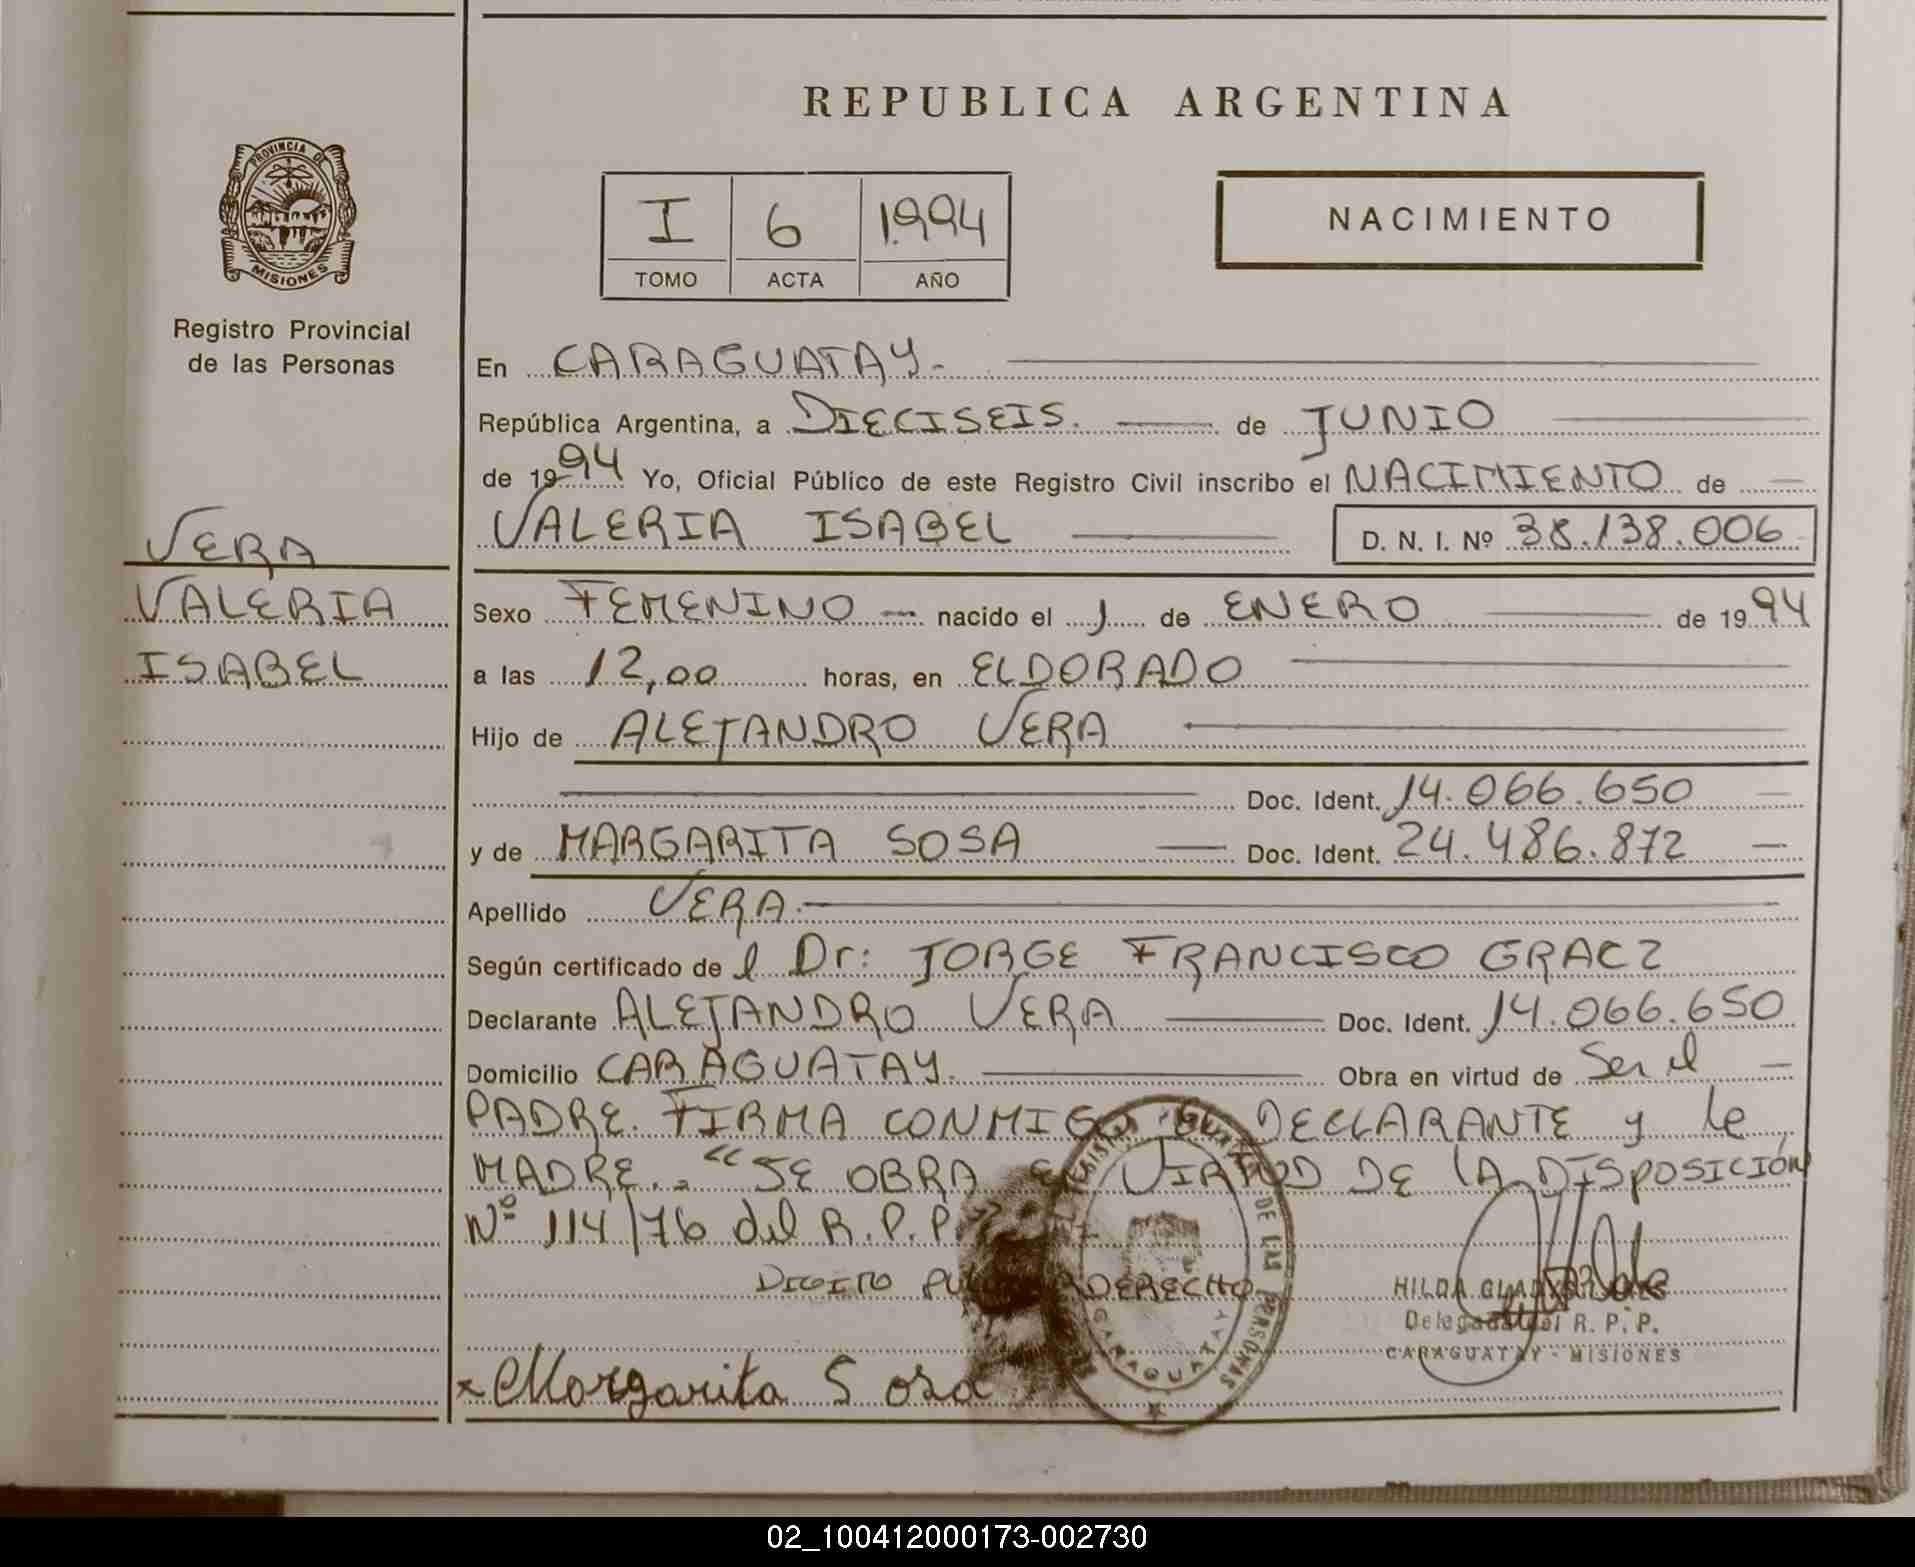 REPUBLICA ARGENTINA
PROVINCIA DE
MISIONES
Registro Provincial
de las Personas
I 6 1.994
TOMO ACTA AÑO
NACIMIENTO
En CARAGUATAY.-
República Argentina, a DIECISEIS. de JUNIO
de 1994 Yo, Oficial Público de este Registro Civil inscribo el NACIMIENTO de
VALERIA ISABEL D. N. I. Nº 38.138.006
VERA
VALERIA
ISABEL
Sexo FEMENINO nacido el 1 de ENERO de 1994
a las 12,00 horas, en ELDORADO
Hijo de ALEJANDRO VERA
Doc. Ident. 14.066.650
y de MARGARITA SOSA Doc. Ident. 24.486.872
Apellido VERA.
Según certificado de l Dr: JORGE FRANCISCO GRACZ
Declarante ALEJANDRO VERA Doc. Ident. 14.066.650
Domicilio CARAGUATAY. Obra en virtud de Ser el
PADRE. FIRMA CONMIGO EL DECLARANTE y la
MADRE.. "SE OBRA EN VIRTUD DE LA DISPOSICIÓN
Nº 114/76 del R.P.P."
DIGITO DERECHO
HILDA GLADYS
Delegada del R. P. P.
CARAGUATAY - MISIONES
DE LAS PERSONAS
CARAGUATAY
x Margarita Sosa
02_100412000173-002730